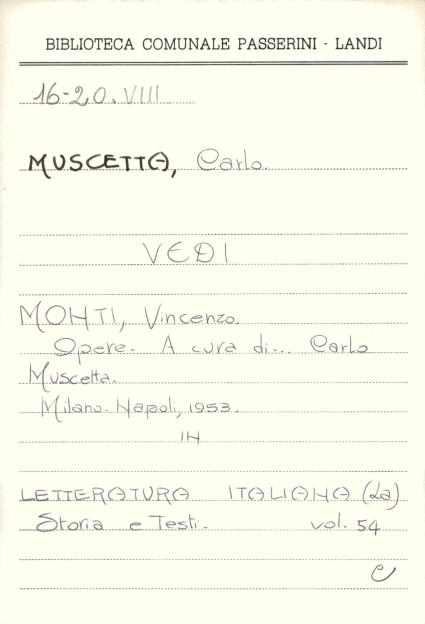 BIBLIOTECA COMUNALE PASSERINI - LANDI
16-20.VIII
MUSCETTA, Carlo.
VEDI
MONTI, Vincenzo.
Opere. A cura di... Carlo
Muscetta.
Milano-Napoli, 1953.
IN
LETTERATURA ITALIANA (La)
Storia e Testi. vol. 54
C